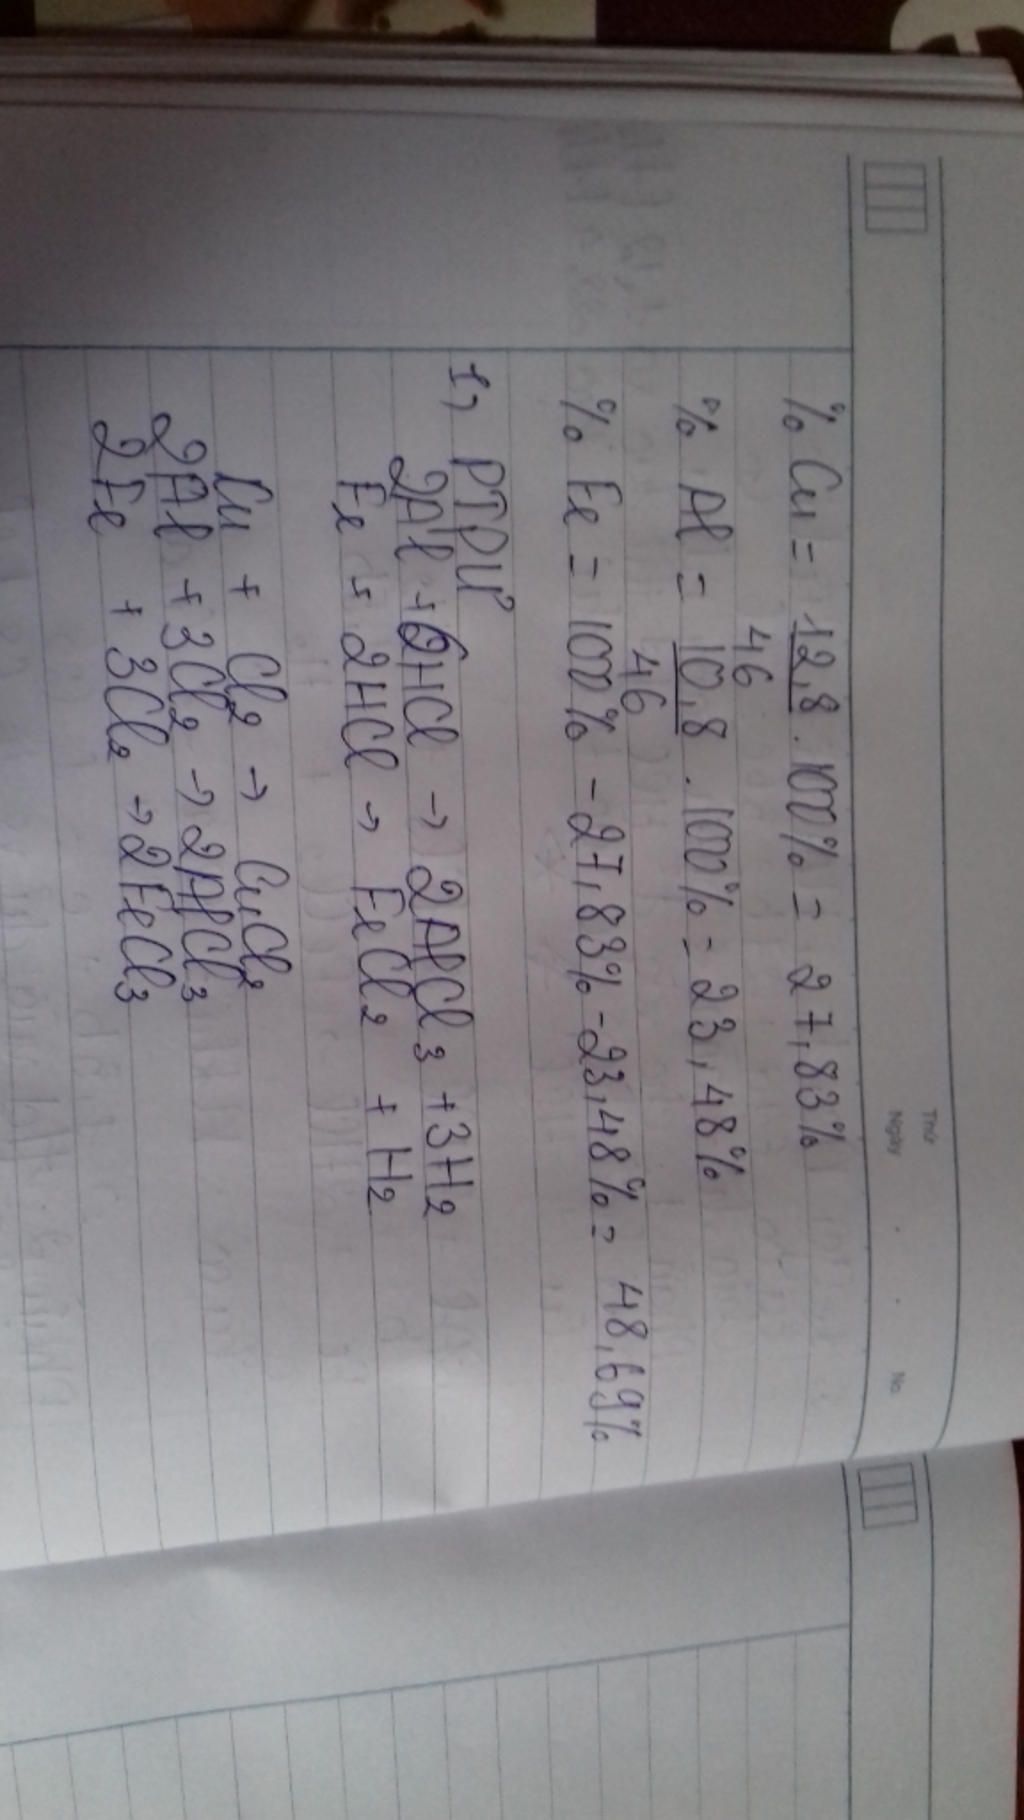 Thứ
Ngày . . No.
% Cu = 12,8 . 100% = 27,83%
46
% Al = 10,8 . 100% = 23,48%
46
% Fe = 100% - 27,83% - 23,48% = 48,69%
1, PTPƯ
2Al + 6HCl → 2AlCl3 + 3H2
Fe + 2HCl → FeCl2 + H2
Cu + Cl2 → CuCl2
2Al + 3Cl2 → 2AlCl3
2Fe + 3Cl2 → 2FeCl3